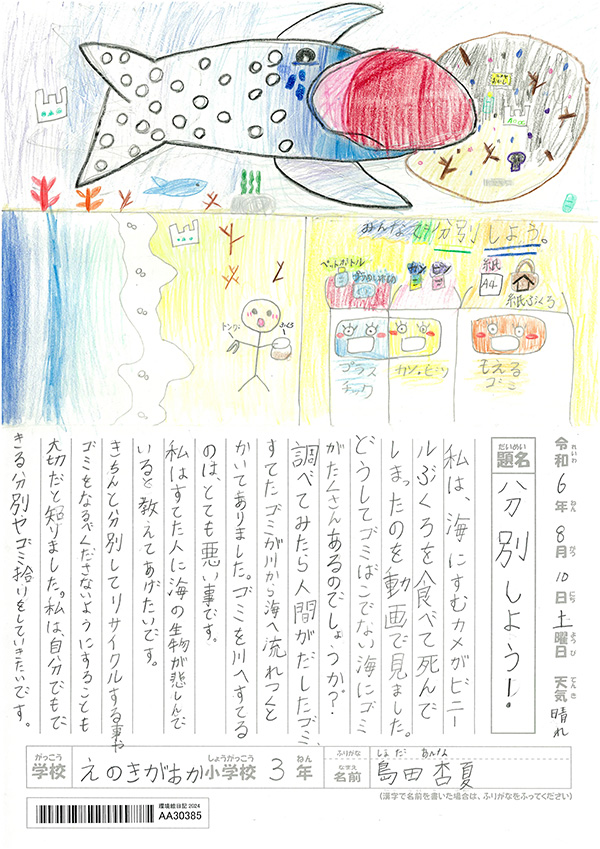 みんなで分別しよう。
ペットボトル
カン
ビン
紙
A4
紙ぶくろ
トング
ふくろ
プラスチック
カン・ビン
もえるゴミ
令和6年8月10日土曜日 天気 晴れ
れいわ ねん がつ にち ようび てんき
だいめい
題名
分別しよう!
私は、海にすむカメがビニー
ルぶくろを食べて死んで
しまったのを動画で見ました。
どうしてゴミばこでない海にゴミ
がたくさんあるのでしょうか?
調べてみたら人間がだしたゴミ、
すてたゴミが川から海へ流れつくと
かいてありました。ゴミを川へすてる
のは、とても悪い事です。
私はすてた人に海の生物が悲しんで
いると教えてあげたいです。
きちんと分別してリサイクルする事や
ゴミをなるべくださないようにすることも
大切だと知りました。私は、自分でもで
きる分別やゴミ拾りをしていきたいです。
がっこう
学校
えのきがおか小学校 3年
しょうがっこう ねん
ふりがな しまだ あんな
なまえ
名前 島田杏夏
(漢字で名前を書いた場合は、ふりがなをふってください)
環境絵日記2024
AA30385